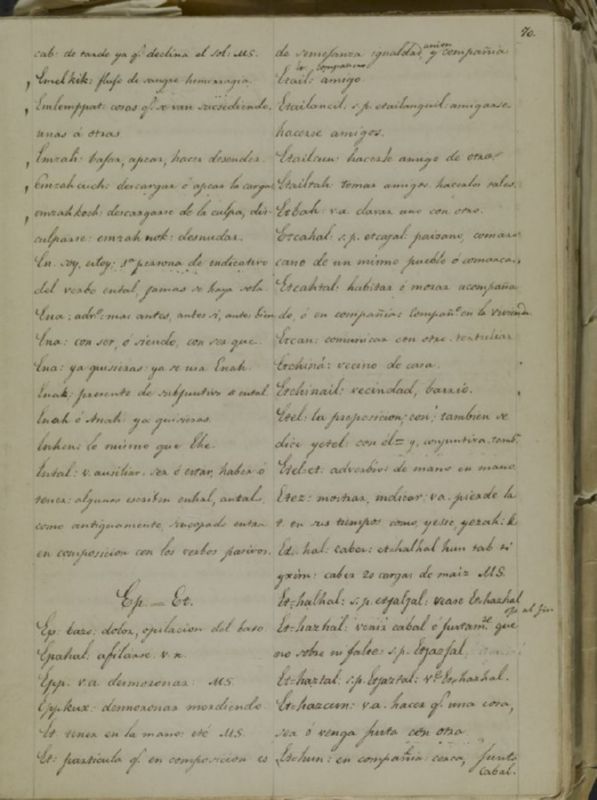 70.
cab: de tarde ya q.e declina el sol: MS.
Emel kik: flujo de sangre hemorragia.
Emlemppat: cosas q.e se van sucediendo,
unas á otras
Emzah: bajar, apear, hacer desender.
Emzah cuch: descargar ó apear la carga
emzah koch: descargarse de la culpa, dis
culparse: emzah nok: desnudar.
En. soy, estoy: 1.a persona de indicativo
del verbo ental, jamas se haya sola
Ena: adv.o: mas antes, antes si, antes bien
Ena: con ser, ó siendo, con ser que.
Ena: ya quisieras: ya se usa Enah.
Enak: presente de subjuntivo ental.
Enah ó Anah: ya quisieras.
Enhen: lo mismo que Ehe.
Ental: v. auxiliar. ser ó estar, haber ó
tener: algunos escriben enhal, antal,
como antiguamente, sincopado entra
en composicion con los verbos pasivos.
Ep — Et.
Ep: bazo: dolor, opilacion del bazo.
Epahal: afilarse: v. n.
Epp. v.a desmoronar: MS.
Epp.kux: desmoronar mordiendo
Et tener en la mano: eté MS.
Et: particula q.e en composicion es
de semejanza igualdad, union y compañia
compañero
Etail: amigo
Etailancil: s.p. etailanguil: amigarse,
hacerse amigos.
Etailcun: hacerle amigo de otro
Etailtah: tomar amigos. hacerlos tales.
Etbah: v.a clavar uno con otro.
Etcahal: s.p. etcajal: paisano, comar
cano de un mismo pueblo ó comarca.
Etcahtal: habitar ó morar acompaña
do, ó en compañia: Compañ.o en la vivienda
Etcan: comunicar con otro. tertuliar
Etchiná: vecino de casa.
Etchinail: vecindad, barrio.
Etel: la preposicion; con; tambien se
dice yetel: con el = y, conjuntiva. tamb.n
Etel-et: adverbio: de mano en mano
Etez: mostrar, indicar: v.a. pierde la
t. en sus tiempos como, yesic, yezah: &
Et-hal: caber: et-halhal hun tab ti
yxim: caber 20 cargas de maiz MS.
Et=halhal: s.p. etjaljal: vease Et=hazhal
Et=hazhal: venir cabal ó justam.te que
no sobre ni falte: s.p. Etjazjal
Et=haztal: s.p. Etjaztal: v.e Et=hazhal.
Et=hazcun: v.a. hacer q.e una cosa,
sea ó venga justa con otra
Et=hun: en compañia: cerca, junto
cabal.